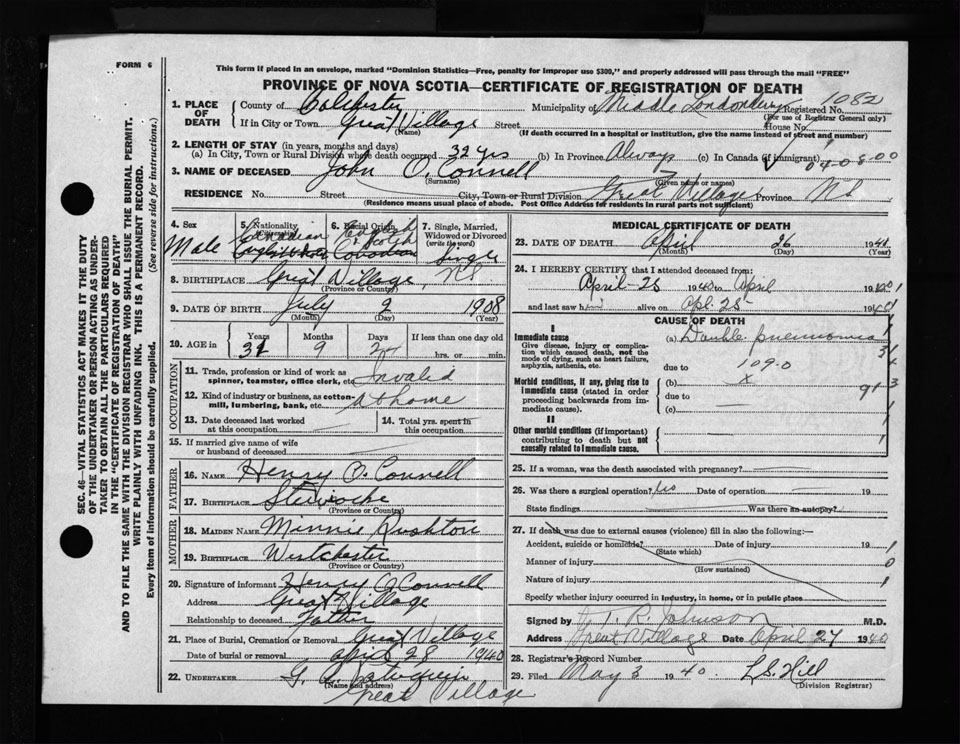 FORM 6
This form if placed in an envelope, marked "Dominion Statistics—Free, penalty for improper use $300," and properly addressed will pass through the mail "FREE"
PROVINCE OF NOVA SCOTIA—CERTIFICATE OF REGISTRATION OF DEATH
1. PLACE OF DEATH
County of Colchester Municipality of Middle Londonderry Registered No. 1082
(For use of Registrar General only)
If in City or Town Great Village Street House No.
(Name) (If death occurred in a hospital or institution, give the name instead of street and number)
2. LENGTH OF STAY (in years, months and days)
(a) In City, Town or Rural Division where death occurred 32 yrs (b) In Province Always (c) In Canada (if immigrant)
04-08-00
3. NAME OF DECEASED John O'Connell
(Surname) (Given name or names)
RESIDENCE No. Street City, Town or Rural Division Great Village Province N S
(Residence means usual place of abode. Post Office Address for residents in rural parts not sufficient)
4. Sex Male
5. Nationality Canadian
6. Racial Origin
7. Single, Married, Widowed or Divorced (write the word) Single
8. BIRTHPLACE Great Village, N S
(Province or Country)
9. DATE OF BIRTH July 2 1908
(Month) (Day) (Year)
10. AGE in Years Months Days If less than one day old
31 9 24 hrs. or min.
OCCUPATION
11. Trade, profession or kind of work as spinner, teamster, office clerk, etc. Invalid
12. Kind of industry or business, as cotton-mill, lumbering, bank, etc. at home
13. Date deceased last worked at this occupation
14. Total yrs. spent in this occupation
15. If married give name of wife or husband of deceased
FATHER
16. NAME Henry O'Connell
17. BIRTHPLACE
(Province or Country)
MOTHER
18. MAIDEN NAME Minnie Rushton
19. BIRTHPLACE Westchester
(Province or Country)
20. Signature of informant Henry O'Connell
Address Great Village
Relationship to deceased Father
21. Place of Burial, Cremation or Removal Great Village
Date of burial or removal April 28 1940
22. UNDERTAKER G.
(Name and address)
Great Village
MEDICAL CERTIFICATE OF DEATH
23. DATE OF DEATH April 26 1940
(Month) (Day) (Year)
24. I HEREBY CERTIFY that I attended deceased from:
April - 25 1940 to April 1940
and last saw him alive on Apl. 25 1940
CAUSE OF DEATH
I
Immediate cause
Give disease, injury or complication which caused death, not the mode of dying, such as heart failure, asphyxia, asthenia, etc.
(a) Double pneumonia
due to 109-0
Morbid conditions, if any, giving rise to immediate cause (stated in order proceeding backwards from immediate cause).
(b) x
due to
(c)
II
Other morbid conditions (if important) contributing to death but not causally related to immediate cause.
25. If a woman, was the death associated with pregnancy?
26. Was there a surgical operation? No Date of operation 19
State findings Was there an autopsy?
27. If death was due to external causes (violence) fill in also the following:—
Accident, suicide or homicide? Date of injury 19
(State which)
Manner of injury
(How sustained)
Nature of injury
Specify whether injury occurred in industry, in home, or in public place
Signed by T. R. Johnson M.D.
Address Great Village Date April 27 1940
28. Registrar's Record Number
29. Filed May 3 1940 L S. Hill
(Division Registrar)
SEC. 46—VITAL STATISTICS ACT MAKES IT THE DUTY OF THE UNDERTAKER OR PERSON ACTING AS UNDERTAKER TO OBTAIN ALL THE PARTICULARS REQUIRED IN THE "CERTIFICATE OF REGISTRATION OF DEATH"
AND TO FILE THE SAME WITH THE DIVISION REGISTRAR WHO SHALL ISSUE THE BURIAL PERMIT.
WRITE PLAINLY WITH UNFADING INK. THIS IS A PERMANENT RECORD.
Every item of information should be carefully supplied. (See reverse side for instructions.)